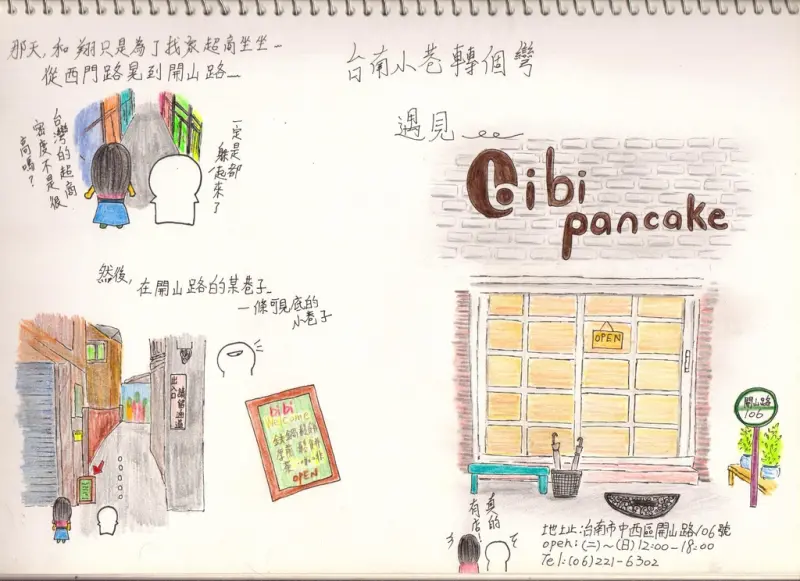 那天,和翔只是為了找家超商坐坐..
從西門路晃到開山路....
台灣的超商
密度不是很
高嗎?
一定是都
躲起來了
然後,在開山路的某巷子..
一條可見底的
小巷子
出入口
bibi
Welcome
OPEN
台南小巷轉個彎
遇見
bibi
pancake
OPEN
開山路
106
真的
有店!
地址:台南市中西區開山路106號
open:(二)~(日)12:00-18:00
Tel:(06)221-6302